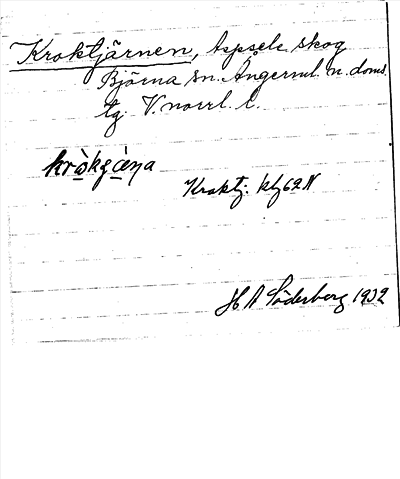 Kroktjärnen, Aspsele skog
Björna sn. Ångerml. n. doms.
tg. V.norrl. l.
Kroktj. ktj 62 N
H A Söderberg 1932